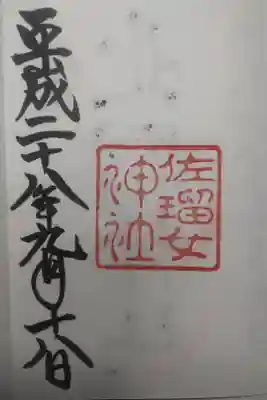 佐瑠女
神社
平成二十八年九月十八日